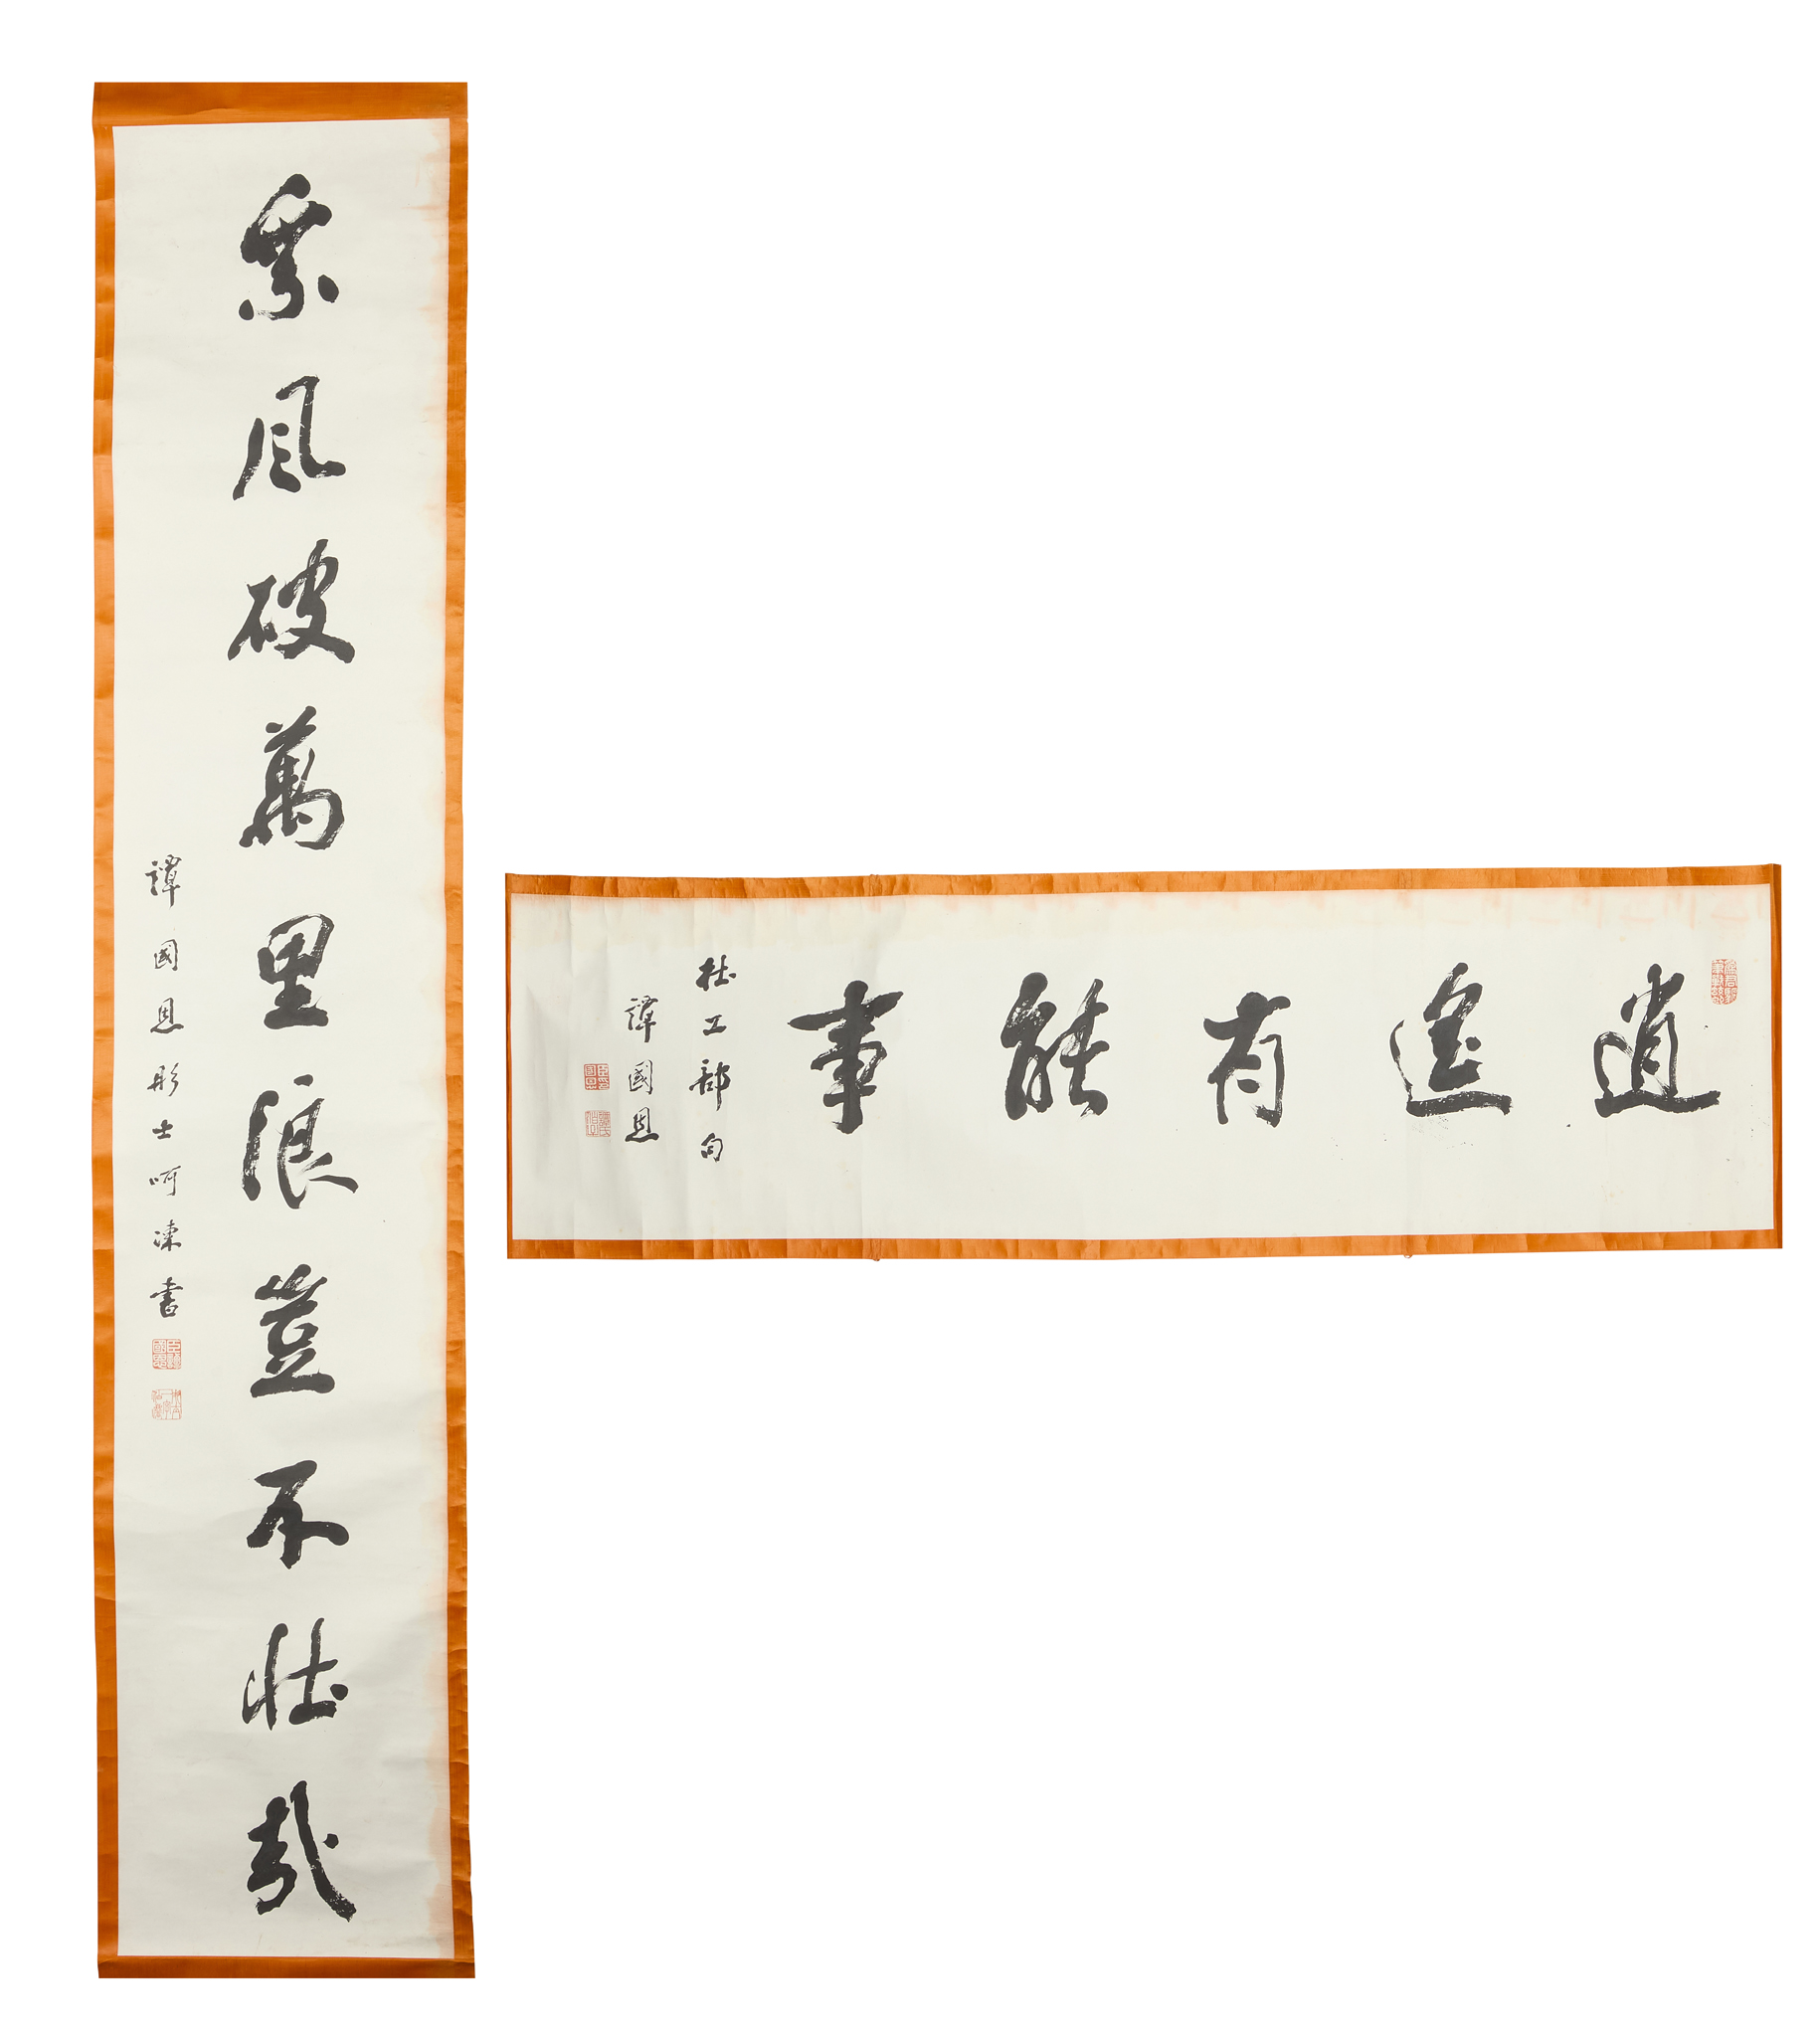 乘風破萬里浪豈不壯哉
譚國恩彤士呵凍書
逍遙有能事
杜工部句
譚國恩